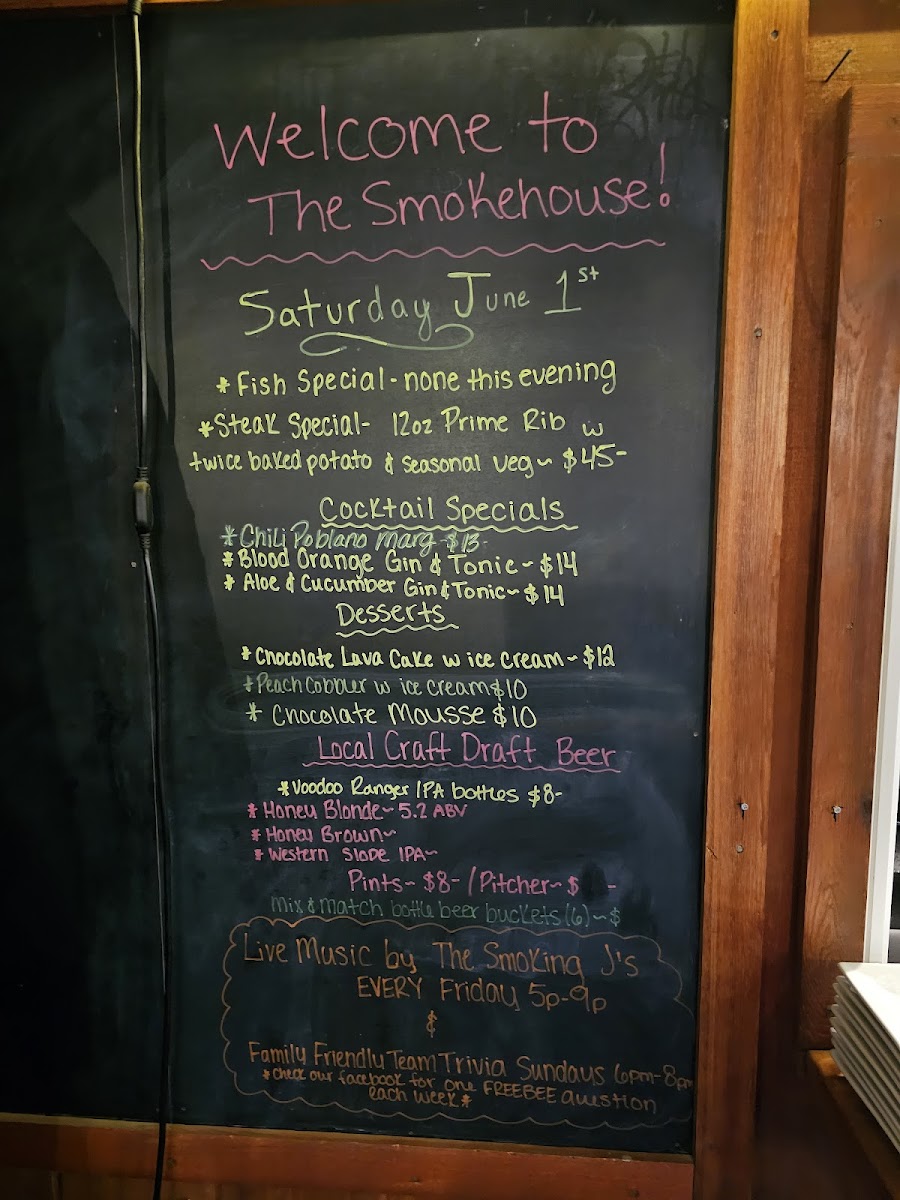 Welcome to
The Smokehouse!
Saturday June 1st
* Fish Special - none this evening
* Steak Special - 12oz Prime Rib w
twice baked potato & seasonal veg ~ $45-
Cocktail Specials
* Chili Poblano Marg - $13-
* Blood Orange Gin & Tonic ~ $14
* Aloe & Cucumber Gin & Tonic ~ $14
Desserts
* Chocolate Lava Cake w ice cream ~ $12
* Peach Cobbler w ice cream $10
* Chocolate Mousse $10
Local Craft Draft Beer
* Voodoo Ranger IPA bottles $8-
* Honey Blonde ~ 5.2 ABV
* Honey Brown ~
* Western Slope IPA ~
Pints ~ $8- / Pitcher ~ $ -
Mix & Match bottle beer buckets (6) ~ $
Live Music by The Smoking J's
EVERY Friday 5p-9p
&
Family Friendly Team Trivia Sundays 6pm-8pm
* check our facebook for one FREEBEE question
each week *